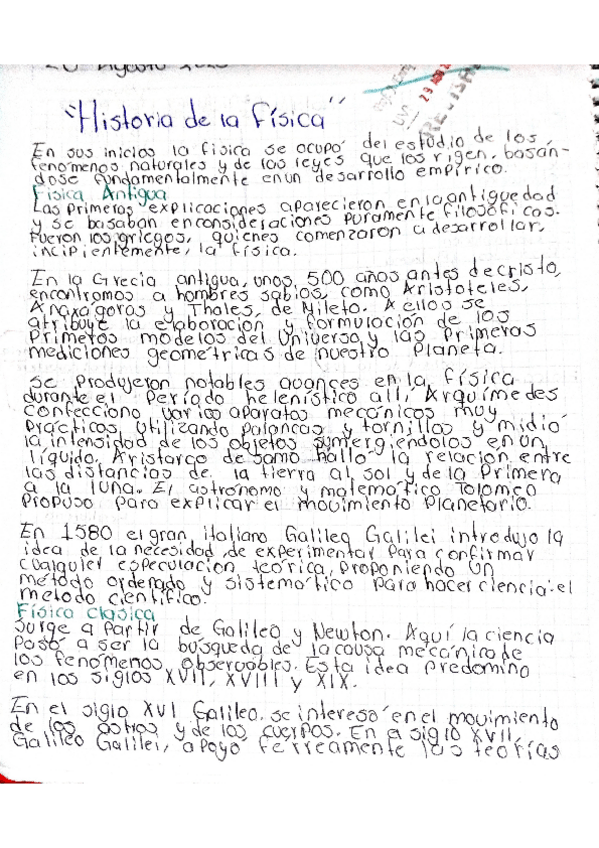 Agosto
29
REVISA
"Historia de la Física"
En sus inicios la física se ocupó del estudio de los
fenómenos naturales y de las leyes que los rigen, basán-
dose fundamentalmente en un desarrollo empírico.
Física Antigua
Las primeras explicaciones aparecieron en la antiguedad
y se basaban en consideraciones puramente filosóficas.
Fueron los griegos, quienes comenzaron a desarrollar,
incipientemente, la física.
En la Grecia antigua, unos 500 años antes de cristo,
encontramos a hombres sabios, como Aristóteles,
Anaxágoras y Thales, de Mileto. A ellos se
atribuye la elaboración y formulación de los
primeros modelos del Universo y las primeras
mediciones geométricas de nuestro Planeta.
Se produjeron notables avances en la física
durante el Período helenístico allí, Arquímedes
confecciono varios aparatos mecánicos muy
prácticos, utilizando palancas y tornillos y midió
la intensidad de los objetos sumergiéndolos en un
líquido. Aristarco de samo halló la relación entre
las distancias de la tierra al sol y de la Primera
a la luna. El astrónomo y matemático Tolomeo
Propuso para explicar el movimiento Planetario.
En 1580 el gran italiano Galileo Galilei introdujo la
idea de la necesidad de experimentar para confirmar
cualquier especulación teórica, proponiendo un
método ordenado y sistemático para hacer ciencia: el
metodo científico.
Física Clasica
Surge a partir de Galileo y Newton. Aquí la ciencia
Pasó a ser la búsqueda de la causa mecánica de
los fenómenos observables. Esta idea predomino
en los siglos XVII, XVIII y XIX.
En el siglo XVI Galileo, se intereso en el movimiento
de los astros y de los cuerpos. En el siglo XVII,
Galileo Galilei, apoyó férreamente las teorías